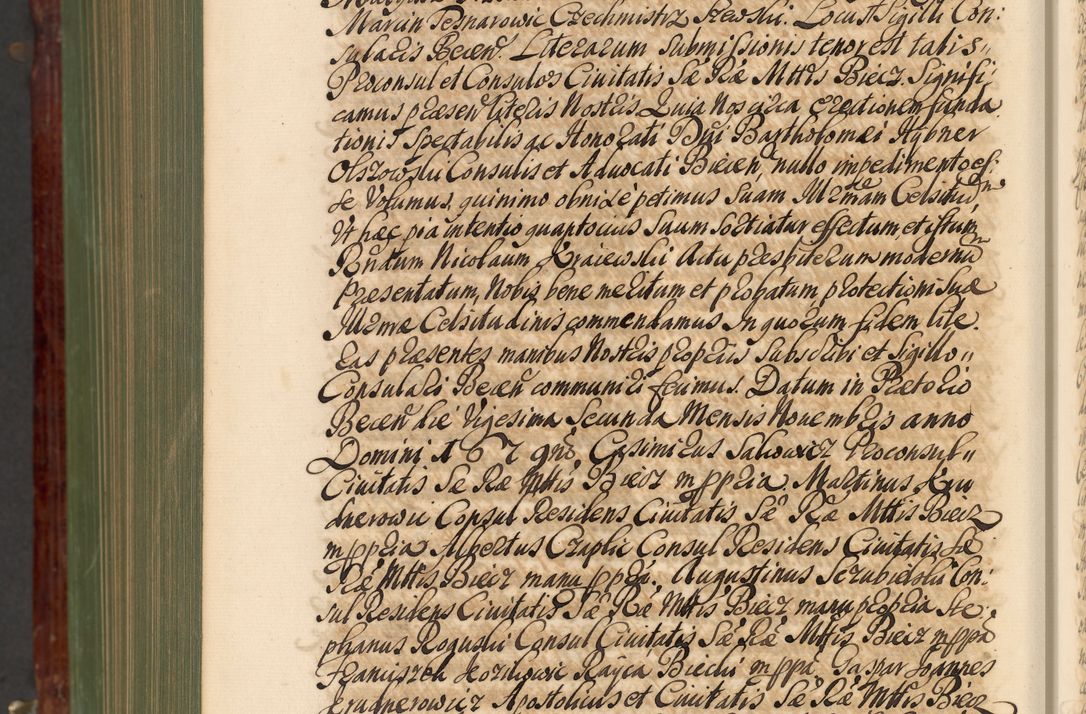 Marcin Tesnarowic Czechmistrz Szewski. Locus Sigilli Con:
sularis Becen. Literarum Submissionis tenor est talis„
Proconsul et Consules Civitatis Sæ Ræ Mttis Biecz. Signifi„
camus præsen Literis Nostris Quia Nos circa Erectionem funda
tionis Spectabilis ac Honorati Dni Bartholomæi Hybner
Olszowski Consulis et Advocati Biecen, nullo impedimento es„
se Volumus, quinimo obnixè petimus Suam Illrmam Celsitudnem
Ut hæc pia intentio quantocius Suum Sortiatur effectum et istum
Rndum Nicolaum Kraiewski Actu præsbiterum modernum
Præsentatum, Nobis bene meritum et probatum protectioni Suæ
Illrmæ Celsitudinis commendamus In quorum fidem lite„
ras præsentes manibus Nostris proprijs Subscribi et Sigillo„
Consulari Becen communiri fecimus. Datum in Prætorio
Becen die Vigesima Secunda Mensis Novembris anno
Domini 167 Casimirus Proconsul„
Civitatis Sæ Ræ Mttis Biecz mppria Martinus Kru
dnerowic Consul Residens Civitatis Sæ Ræ Mttis Biecz
mppria Albertus Czaplic Consul Residens Civitatis Sæ
Ræ Mttis Biecz manu ppria. Augustinus Scrabidski Con:
sul Residens Civitatis Sæ Ræ Mttis Biecz manu propria Ste„
phanus Roguski Consul Civitatis Sæ Ræ Mttis Biecz mppa
Franciszek Rayca Biecki mppa Gaspar Joannes
Krudnerowicz Apostolicus et Civitatis Sæ Ræ Mttis Biecz